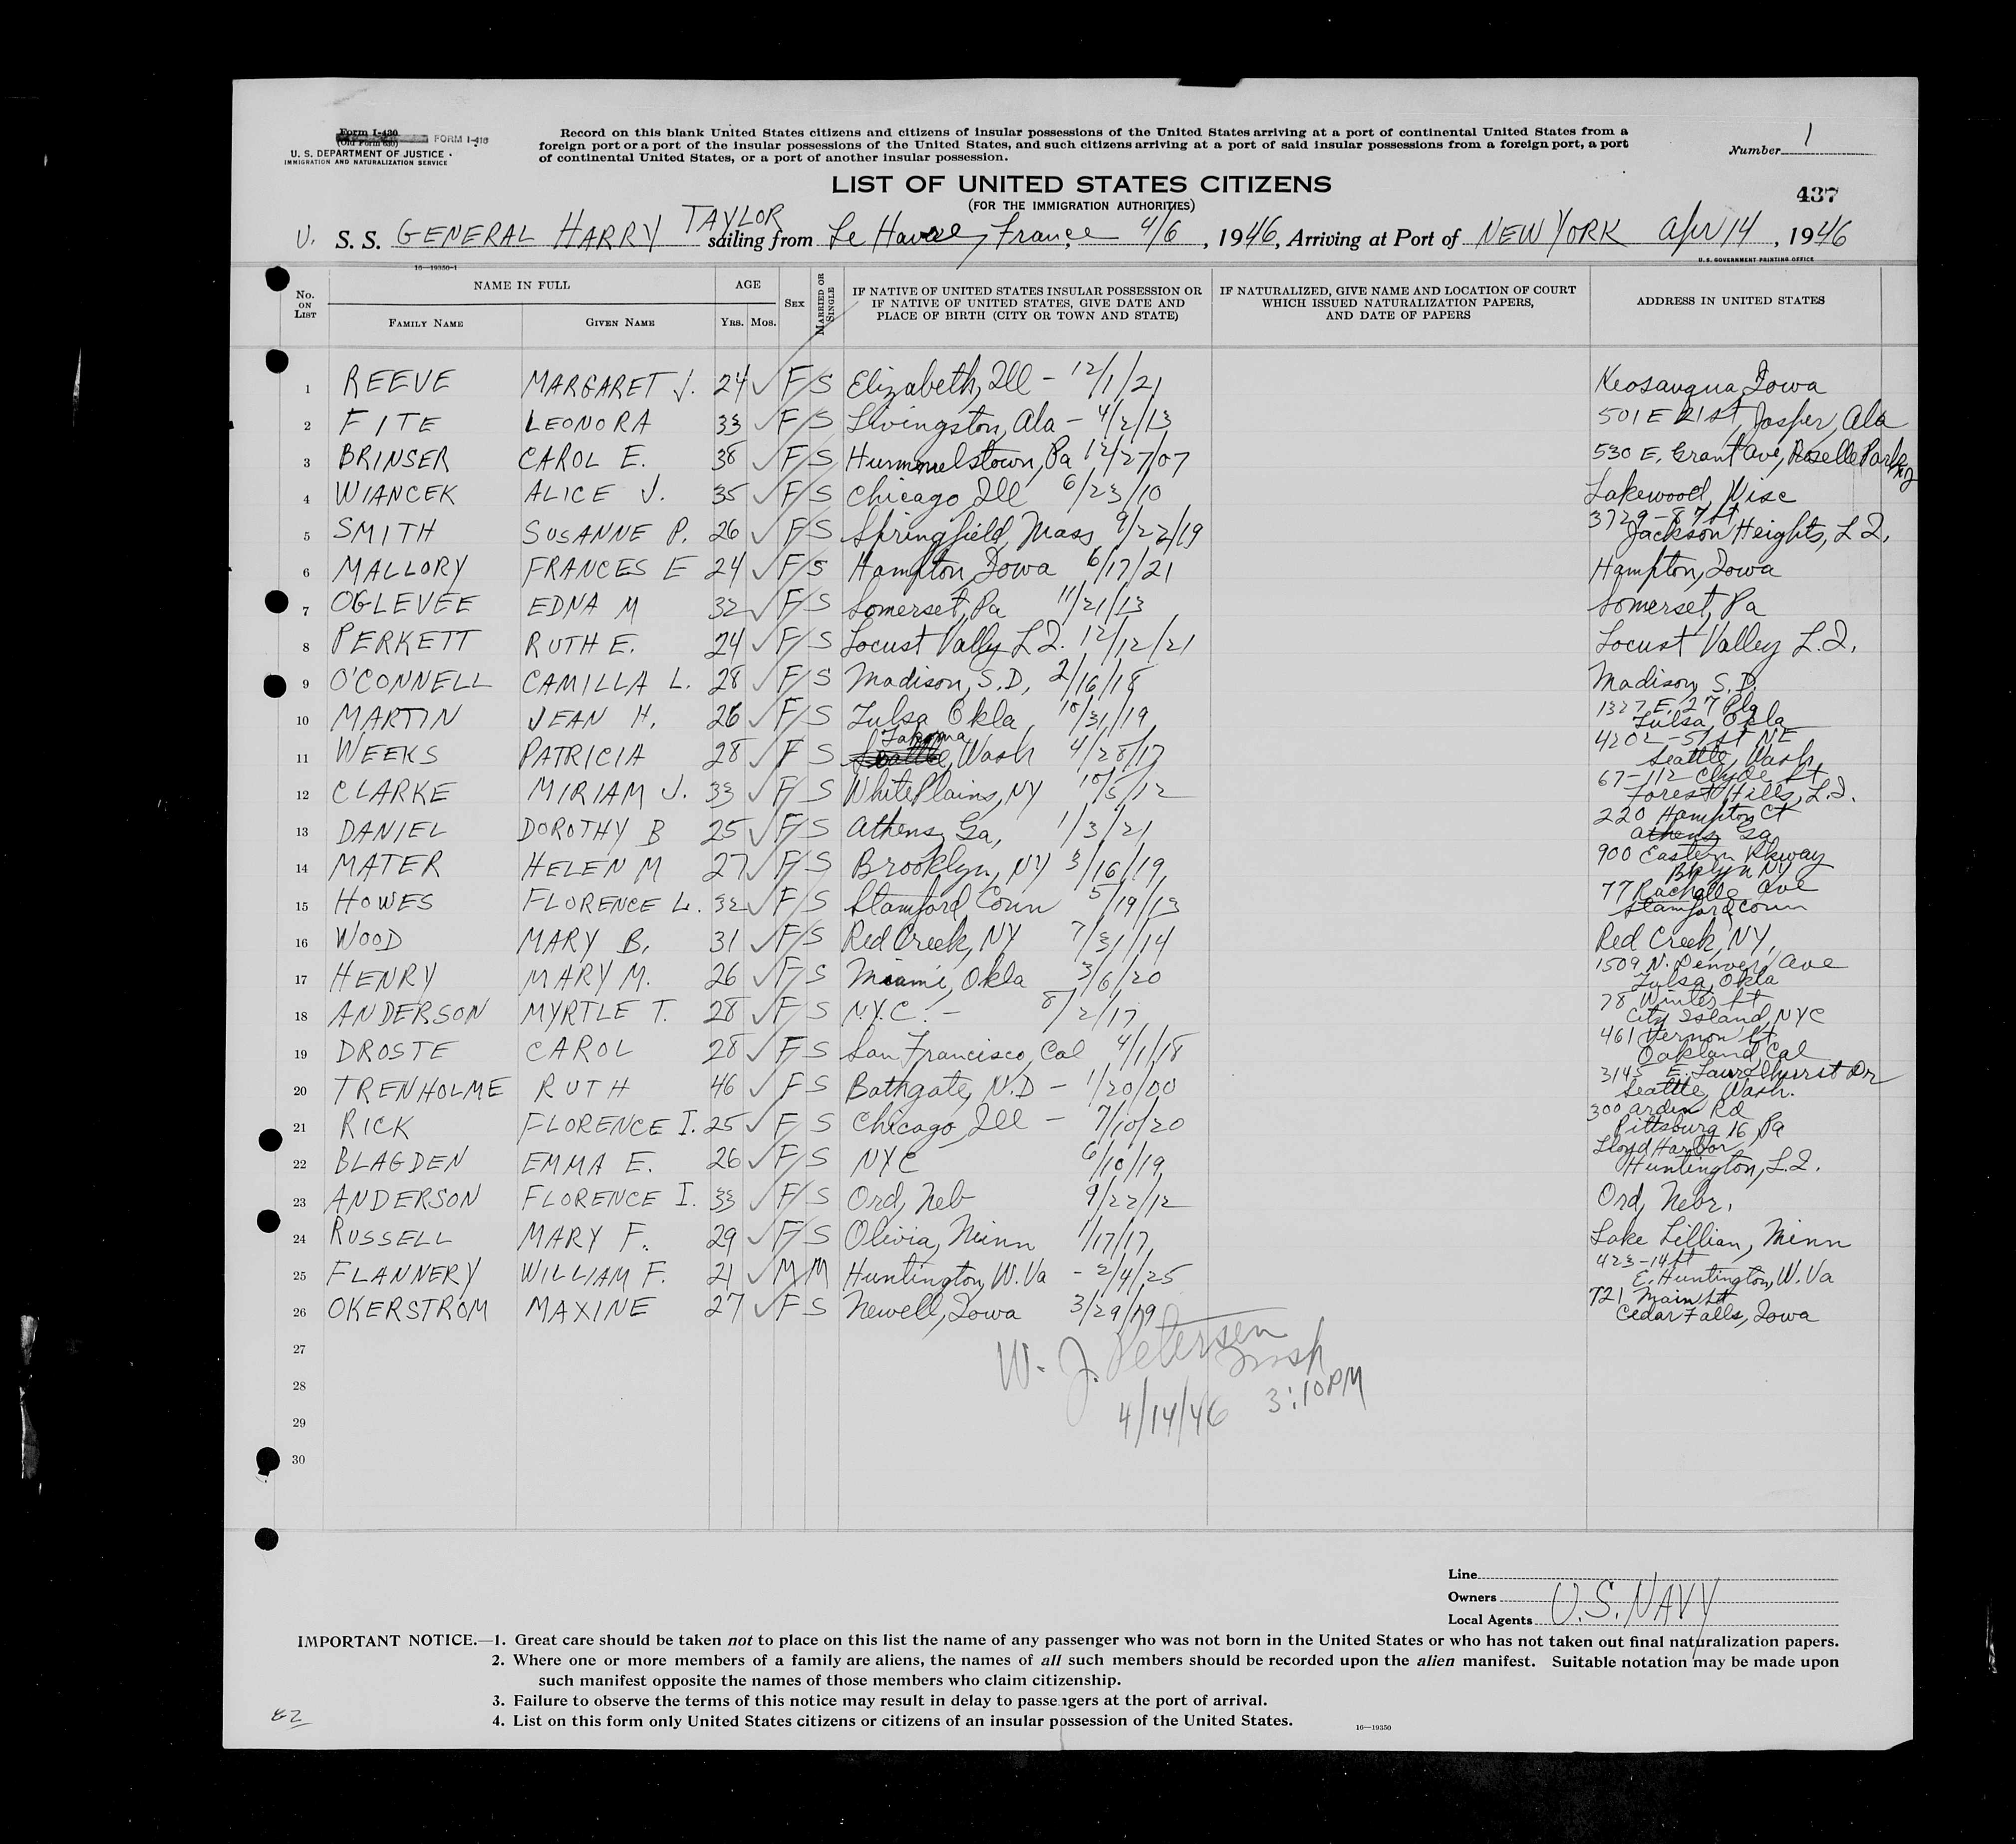 Form I-430
(Old Form 630)
FORM I-416
U. S. DEPARTMENT OF JUSTICE
IMMIGRATION AND NATURALIZATION SERVICE
Record on this blank United States citizens and citizens of insular possessions of the United States arriving at a port of continental United States from a
foreign port or a port of the insular possessions of the United States, and such citizens arriving at a port of said insular possessions from a foreign port, a port
of continental United States, or a port of another insular possession.
Number 1
LIST OF UNITED STATES CITIZENS
(FOR THE IMMIGRATION AUTHORITIES)
437
U. S. S. GENERAL HARRY TAYLOR sailing from Le Havre, France 4/6, 1946, Arriving at Port of NEW YORK Apr 14, 1946
16—19350-1
U. S. GOVERNMENT PRINTING OFFICE
No. ON LIST
NAME IN FULL
FAMILY NAME GIVEN NAME
AGE
YRS. MOS.
SEX
MARRIED OR SINGLE
IF NATIVE OF UNITED STATES INSULAR POSSESSION OR
IF NATIVE OF UNITED STATES, GIVE DATE AND
PLACE OF BIRTH (CITY OR TOWN AND STATE)
IF NATURALIZED, GIVE NAME AND LOCATION OF COURT
WHICH ISSUED NATURALIZATION PAPERS,
AND DATE OF PAPERS
ADDRESS IN UNITED STATES
1 REEVE MARGARET J. 24 ✓ F S Elizabeth, Ill - 12/1/21 Keosauqua Iowa
2 FITE LEONORA 33 ✓ F S Livingston, Ala - 4/2/13 501 E 21 St, Jasper, Ala
3 BRINSER CAROL E. 38 ✓ F S Hummelstown, Pa 12/27/07 530 E. Grant Ave, Roselle Park NJ
4 WIANCEK ALICE J. 35 ✓ F S Chicago Ill 6/23/10 Lakewood, Wisc
5 SMITH SUSANNE P. 26 ✓ F S Springfield, Mass 9/22/19 3729-87 St
Jackson Heights, L.I.
6 MALLORY FRANCES E 24 ✓ F S Hampton Iowa 6/17/21 Hampton, Iowa
7 OGLEVEE EDNA M 32 ✓ F S Somerset, Pa 11/21/13 Somerset, Pa
8 PERKETT RUTH E. 24 ✓ F S Locust Vally L.I. 12/12/21 Locust Valley L.I.
9 O'CONNELL CAMILLA L. 28 ✓ F S Madison, S.D. 2/16/18 Madison, S.D.
10 MARTIN JEAN H. 26 ✓ F S Tulsa Okla 10/31/19 1327 E. 27 Pla
Tulsa, Okla
11 WEEKS PATRICIA 28 ✓ F S Seattle Takoma, Wash 4/28/17 4202-51 St NE
Seattle, Wash.
12 CLARKE MIRIAM J. 33 ✓ F S White Plains, NY 10/5/12 67-112 Clyde St
Forest Hills, L.I.
13 DANIEL DOROTHY B 25 ✓ F S Athens, Ga, 1/3/21 220 Hampton Ct
Athens Ga
14 MATER HELEN M 27 ✓ F S Brooklyn, NY 3/16/19 900 Eastern Pkway
Bklyn NY
15 HOWES FLORENCE L. 32 ✓ F S Stamford Conn 5/19/13 77 Rachelle Ave
Stamford Conn
16 WOOD MARY B. 31 ✓ F S Red Creek, NY 7/31/14 Red Creek, NY.
17 HENRY MARY M. 26 ✓ F S Miami, Okla 3/6/20 1509 N. Denver Ave
Tulsa, Okla
18 ANDERSON MYRTLE T. 28 ✓ F S N.Y.C. - 8/2/17 78 Winter St
City Island, NYC
19 DROSTE CAROL 28 ✓ F S San Francisco, Cal 4/1/18 461 Vernon St
Oakland, Cal
20 TRENHOLME RUTH 46 ✓ F S Bathgate, N.D - 1/20/00 3145 E. Laurelhurst Dr
Seattle, Wash.
21 RICK FLORENCE I. 25 ✓ F S Chicago Ill - 7/10/20 300 Arden Rd
Pittsburg 16, Pa
22 BLAGDEN EMMA E. 26 ✓ F S NYC 6/10/19 Lloyd Harbor
Huntington, L.I.
23 ANDERSON FLORENCE I. 33 ✓ F S Ord, Neb 9/22/12 Ord, Nebr.
24 RUSSELL MARY F. 29 ✓ F S Olivia, Minn 1/17/17 Lake Lillian, Minn
25 FLANNERY WILLIAM F. 21 ✓ M M Huntington, W.Va - 2/4/25 423-14 St
E. Huntington, W.Va
26 OKERSTROM MAXINE 27 ✓ F S Newell, Iowa 3/29/19 721 Main St
Cedar Falls, Iowa
27
28
29
30
W. J. Petersen
Insp
4/14/46 3:10PM
Line
Owners
Local Agents
U.S. NAVY
IMPORTANT NOTICE.—1. Great care should be taken not to place on this list the name of any passenger who was not born in the United States or who has not taken out final naturalization papers.
2. Where one or more members of a family are aliens, the names of all such members should be recorded upon the alien manifest. Suitable notation may be made upon
such manifest opposite the names of those members who claim citizenship.
3. Failure to observe the terms of this notice may result in delay to passengers at the port of arrival.
4. List on this form only United States citizens or citizens of an insular possession of the United States.
16—19350